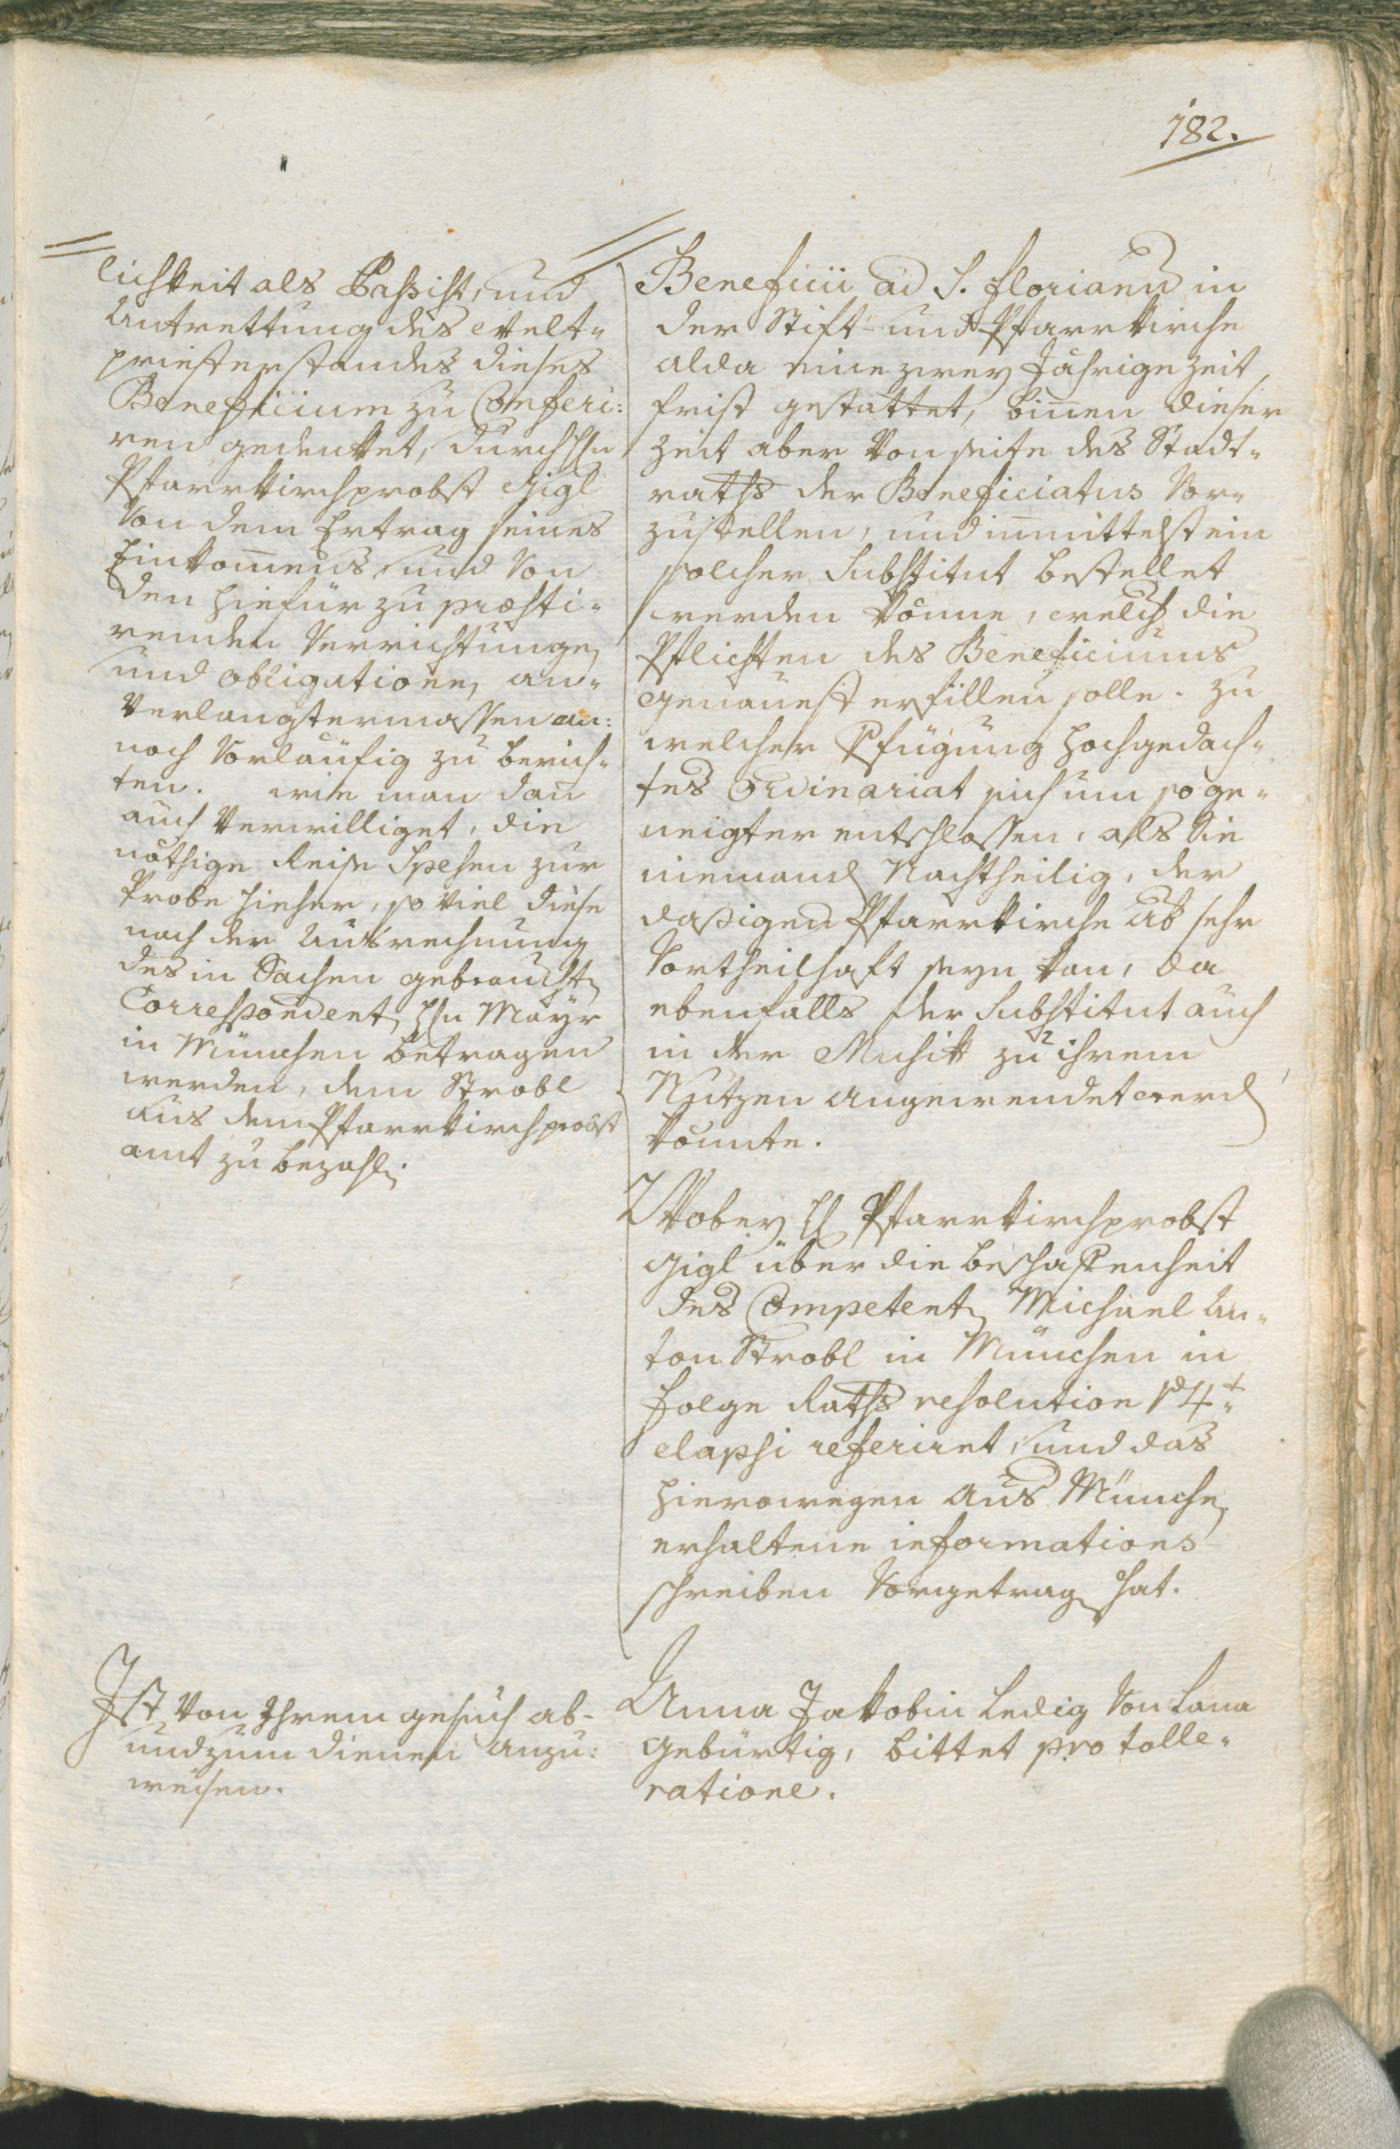 182.
lichkeit als Bassist, und
Antrettung des Welt-
priesterstandes dieses
Beneficium zu Conferi:
ren gedenket, durch Hn
Pfarrkirchprobst Gigl
von dem Ertrag seines
Einkomens und von
den hiefür zu præsti-
renden Verrichtungen
und obligationen an-
verlangtermassen an:
noch vorläufig zu berich-
ten. wie man dan
auch verwilliget, die
nöthige Reise Spesen zur
Probe hieher, so viel diese
nach der Ausrechnung
des in Sachen gebrauchten
Correspondenten Hn Mayr
in München betragen
werden, dem Strobl
aus dem Pfarrkirchprobst
amt zu bezahlen.
Ist von Ihrem gesuch ab-
und zum dienen anzu:
weisen.
Beneficii ad S. Florianum in
der Stift- und Pfarrkirche
alda eine zwey Jährige Zeit
frist gestattet, binen dieser
Zeit aber von seite des Stadt-
raths der Beneficiatus vor-
zustellen, und inmittelst ein
solcher Substitut bestellet
werden könne, welch die
Pflichten des Beneficiums
genauest erfillen solle. zu
welcher Pfügung hochgedach-
tes Ordinariat sich um so ge-
neigter entschlossen, als Sie
niemand Nachtheilig, der
dasigen Pfarrkirche ab sehr
Vortheilhaft seyn kan, da
ebenfalls der Substitut auch
in der Musik zu ihrem
Nutzen angewendet werd
könnte.
Wobey H Pfarrkirchprobst
Gigl über die beschaffenheit
des Competenten Michael An-
ton Strobl in München in
Folge Raths resolution 14t
elapsi referiret, und das
hierowegen aus München
erhaltene informations-
schreiben vorgetragen hat.
Anna Jakobin ledig von Lana
gebürtig, bittet pro tolle-
ratione.